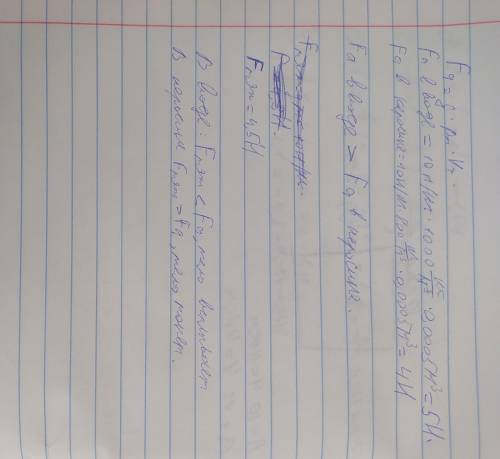 Fa = g · ρж · Vт.
Fa в воде = 10 н/кг · 1000 кг/м³ · 0,0005 м³ = 5 Н.
Fa в керосине = 10 Н/кг · 800 кг/м³ · 0,0005 м³ = 4 Н
Fa в воде > Fa в керосине.
Fтяж = 4,5 Н
В воде: Fтяж < Fa, тело всплывает
В керосине Fтяж > Fa, тело тонет.